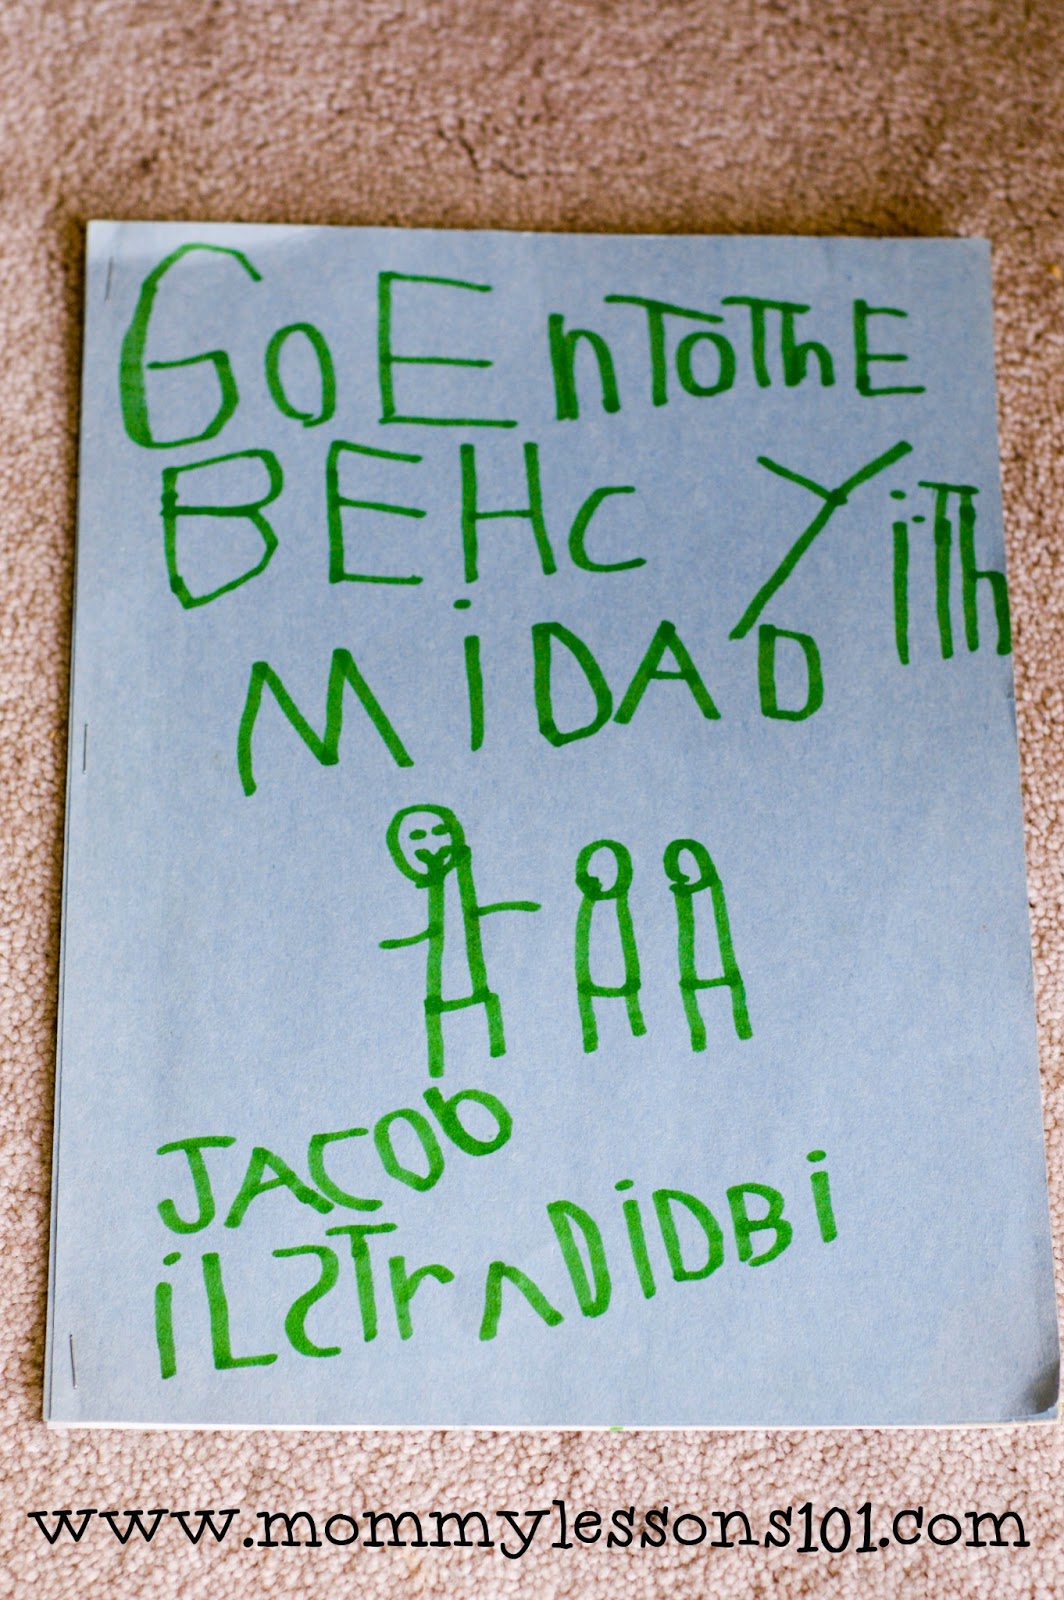 GoEnToThE
BEHC Yith
MiDAD
JACOb
iLSTrADiDBi
www.mommylessons101.com